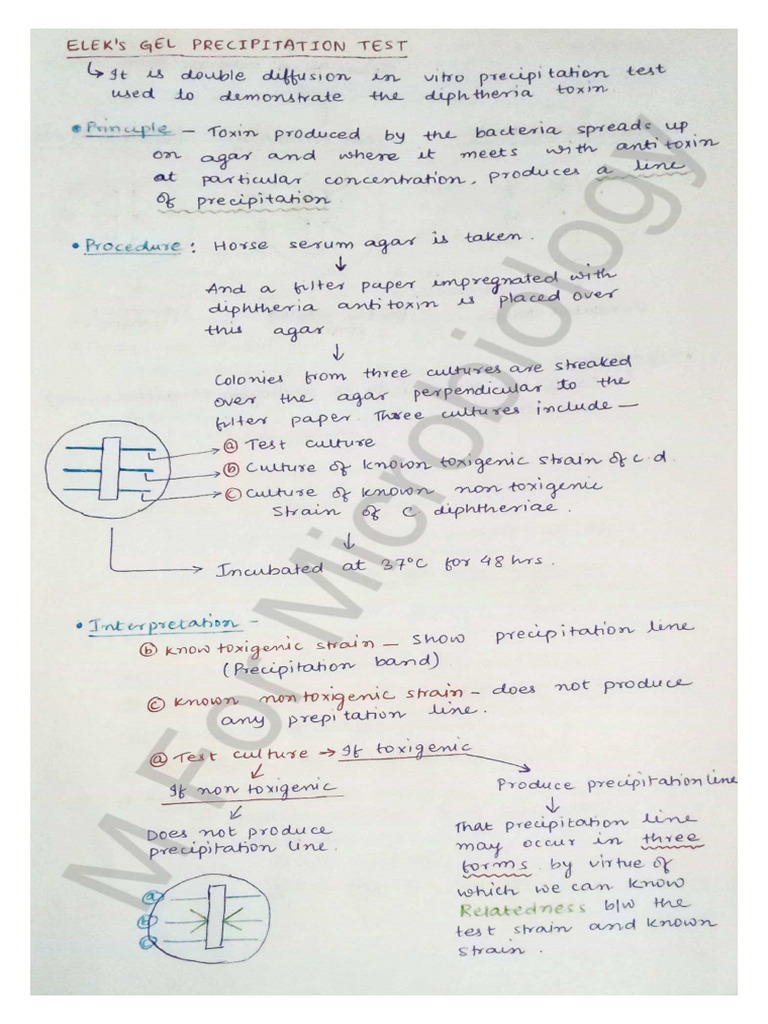 ELEK'S GEL PRECIPITATION TEST
↳ It is double diffusion in vitro precipitation test
used to demonstrate the diphtheria toxin.
• Principle – Toxin produced by the bacteria spreads up
on agar and where it meets with antitoxin
at particular concentration, produces a line
of precipitation
• Procedure : Horse serum agar is taken.
↓
And a filter paper impregnated with
diphtheria antitoxin is placed over
this agar
↓
Colonies from three cultures are streaked
over the agar perpendicular to the
filter paper. Three cultures include –
ⓐ Test culture
ⓑ Culture of known toxigenic strain of c.d.
ⓒ Culture of known non toxigenic
strain of C diphtheriae.
↓
Incubated at 37°C for 48 hrs.
• Interpretation –
ⓑ Know toxigenic strain – Show precipitation line
(Precipitation band)
ⓒ Known nontoxigenic strain – does not produce
any prepitation line.
ⓐ Test culture → If toxigenic
If non toxigenic
Produce precipitation line
Does not produce
precipitation line.
That precipitation line
may occur in three
forms by virtue of
which we can know
Relatedness b/w the
test strain and known
strain.
ⓐ
ⓑ
ⓒ
M For Microbiology